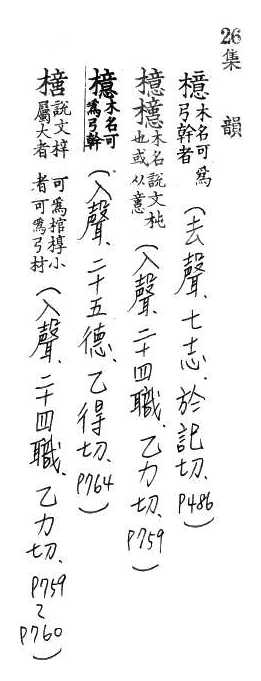 26集韻
檍木名可為弓幹者(去聲、七志、於記切、P486)
檍檍木名說文杶也或从意(入聲、二十四職、乙力切、P759)
檍木名可為弓幹(入聲、二十五德、乙得切、P764)
說文梓屬大者可為棺椁小者可為弓材(入聲、二十四職、乙力切、P759~P760)